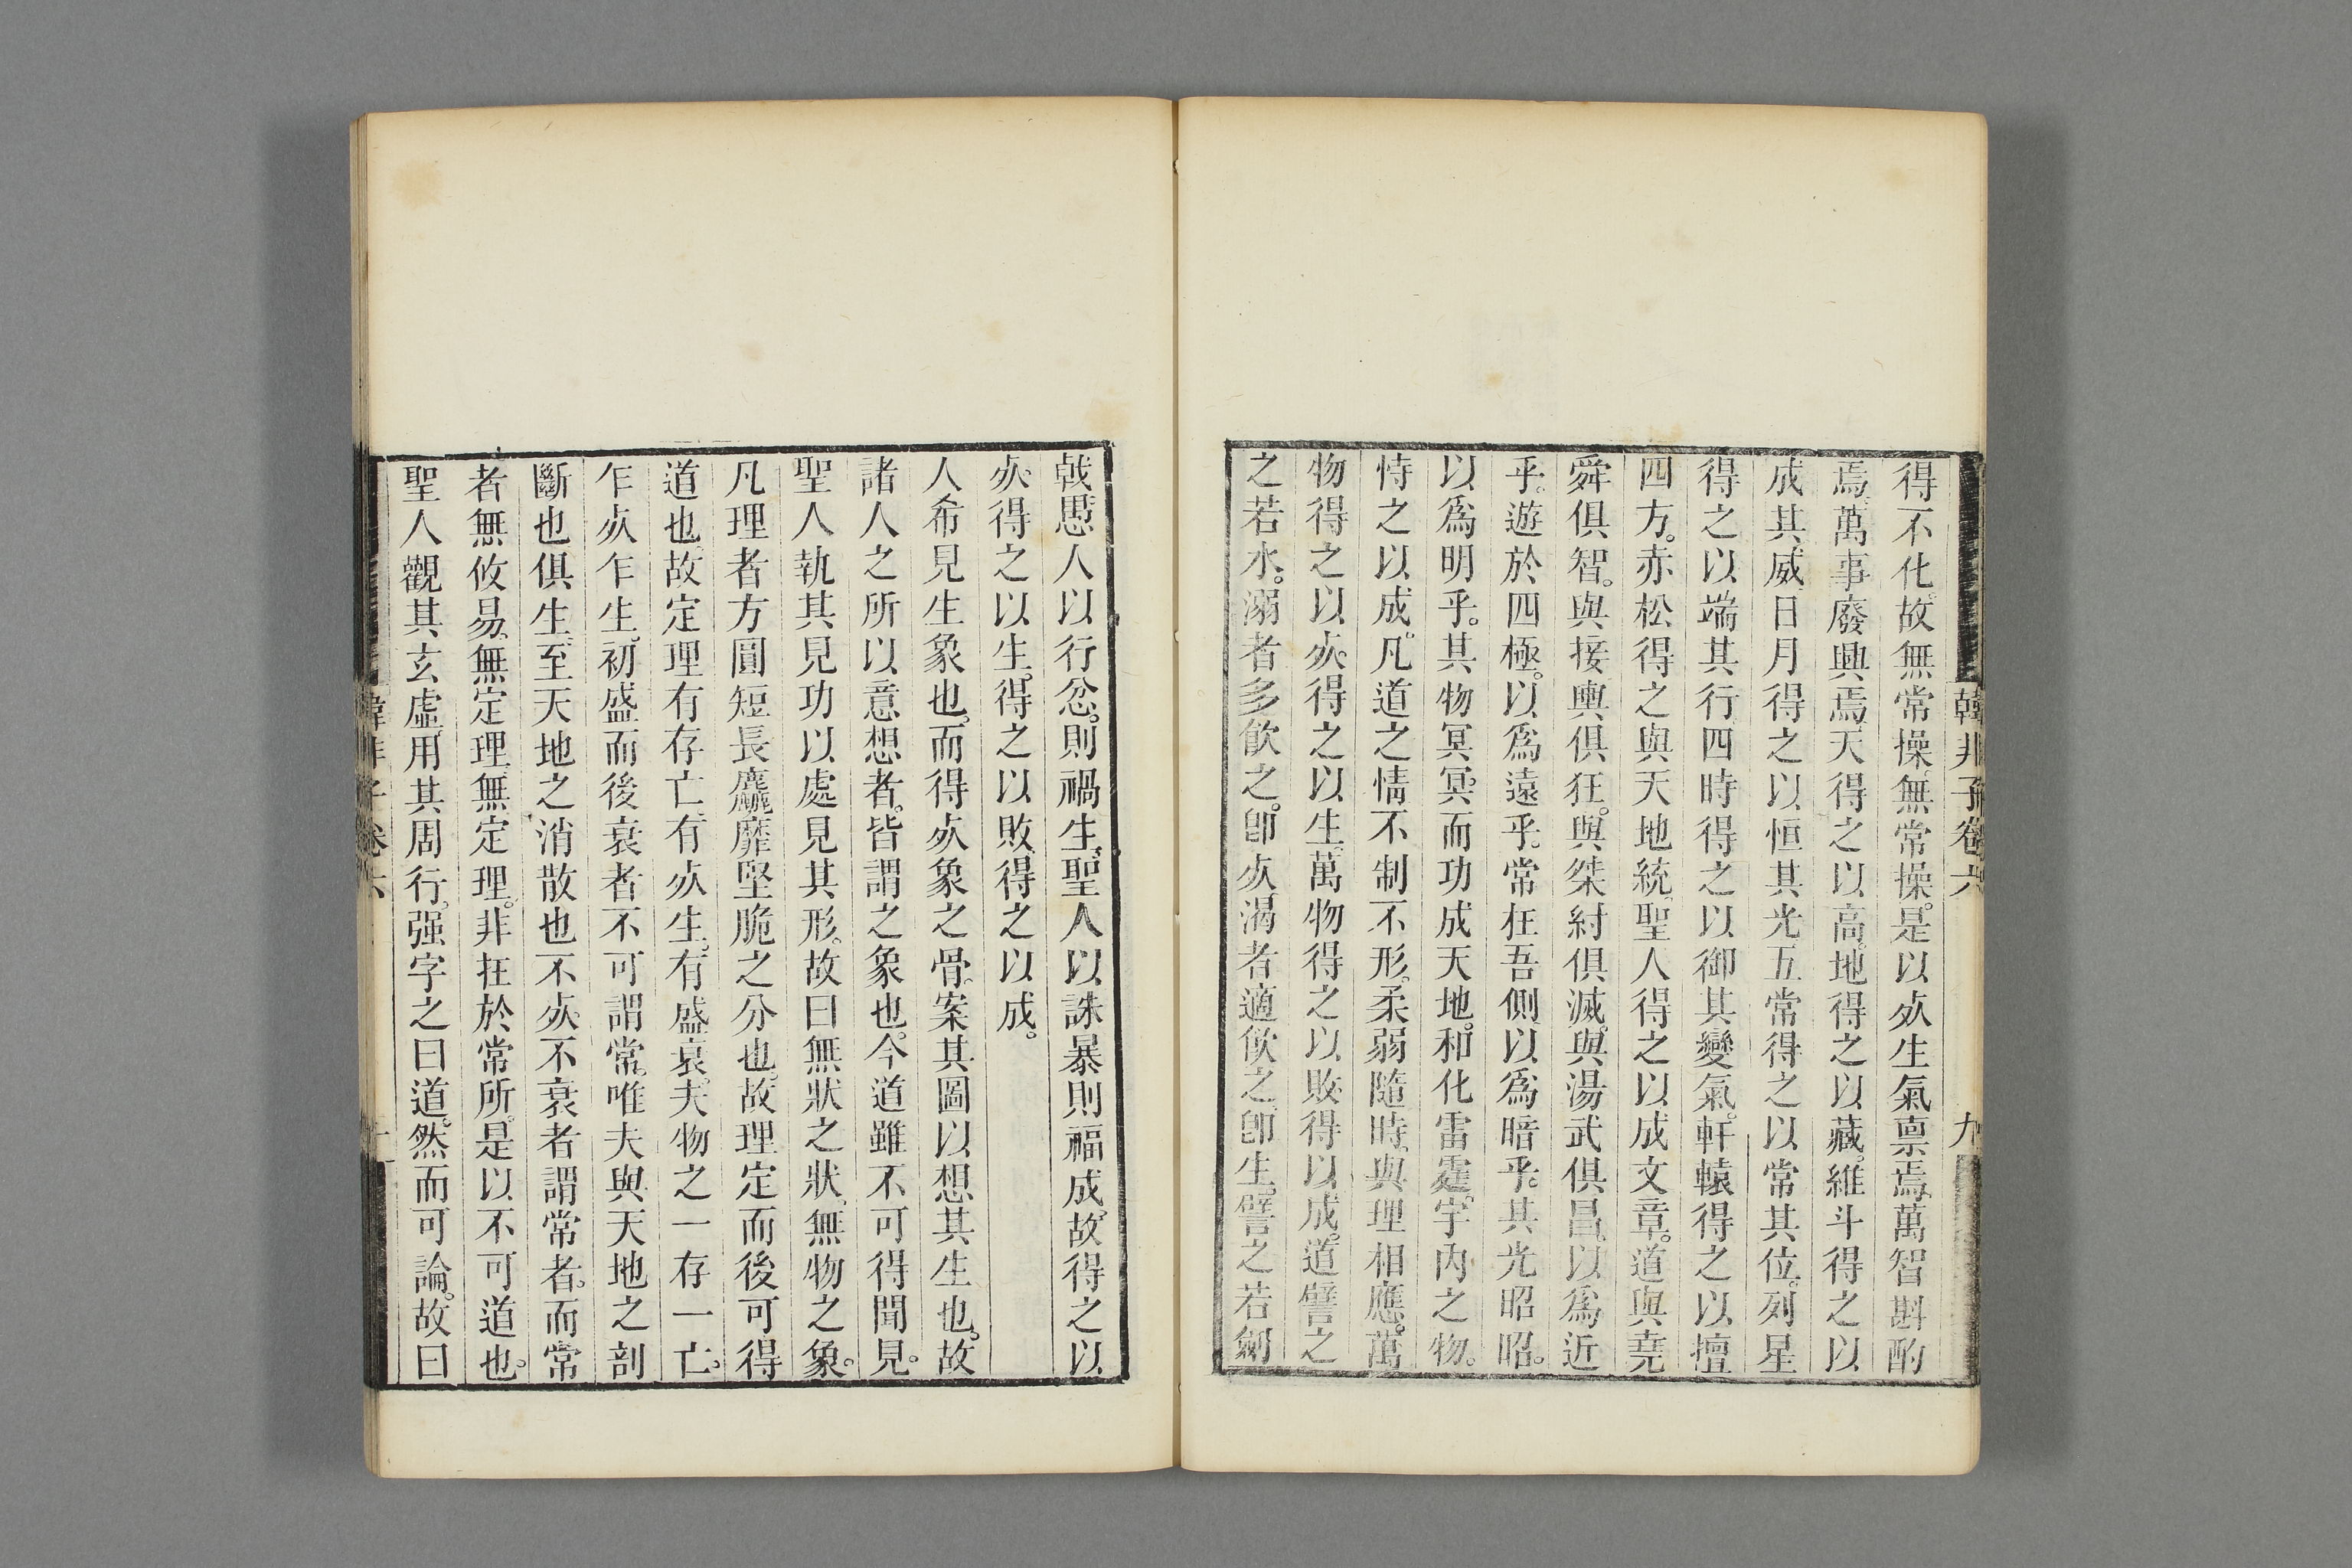 韓非子卷六 九
得不化。故無常操。無常操。是以死生氣禀焉。萬智斟酌
焉。萬事廢興焉。天得之以高。地得之以藏。維斗得之以
成其威。日月得之以恒其光。五常得之以常其位。列星
得之以端其行。四時得之以御其變氣。軒轅得之以擅
四方。赤松得之與天地統。聖人得之以成文章。道與堯
舜俱智。與接輿俱狂。與桀紂俱滅。與湯武俱昌。以爲近
乎。遊於四極。以爲遠乎。常在吾側。以爲暗乎。其光昭昭。
以爲明乎。其物冥冥。而功成天地。和化雷霆。宇內之物。
恃之以成。凡道之情。不制不形。柔弱隨時。與理相應。萬
物得之以死。得之以生。萬物得之以敗。得以成。道譬之
之若水。溺者多飲之。卽死。渴者適飲之。卽生。譬之若劒
戟。愚人以行忿。則禍生。聖人以誅暴則福成。故得之以
死。得之以生。得之以敗。得之以成。
人希見生象也。而得死象之骨。案其圖以想其生也。故
諸人之所以意想者。皆謂之象也。今道雖不可得聞見。
聖人執其見功以處見其形。故曰無狀之狀。無物之象。
凡理者方圓短長麤靡堅脆之分也。故理定而後可得
道也。故定理有存亡。有死生。有盛衰。夫物之一存一亡。
乍死乍生。初盛而後衰者。不可謂常。唯夫與天地之剖
斷也俱生。至天地之消散也不死不衰者謂常者。而常
者無攸易。無定理。無定理。非在於常所。是以不可道也。
聖人觀其玄虛。用其周行。强字之曰道。然而可論。故曰
韓非子卷六